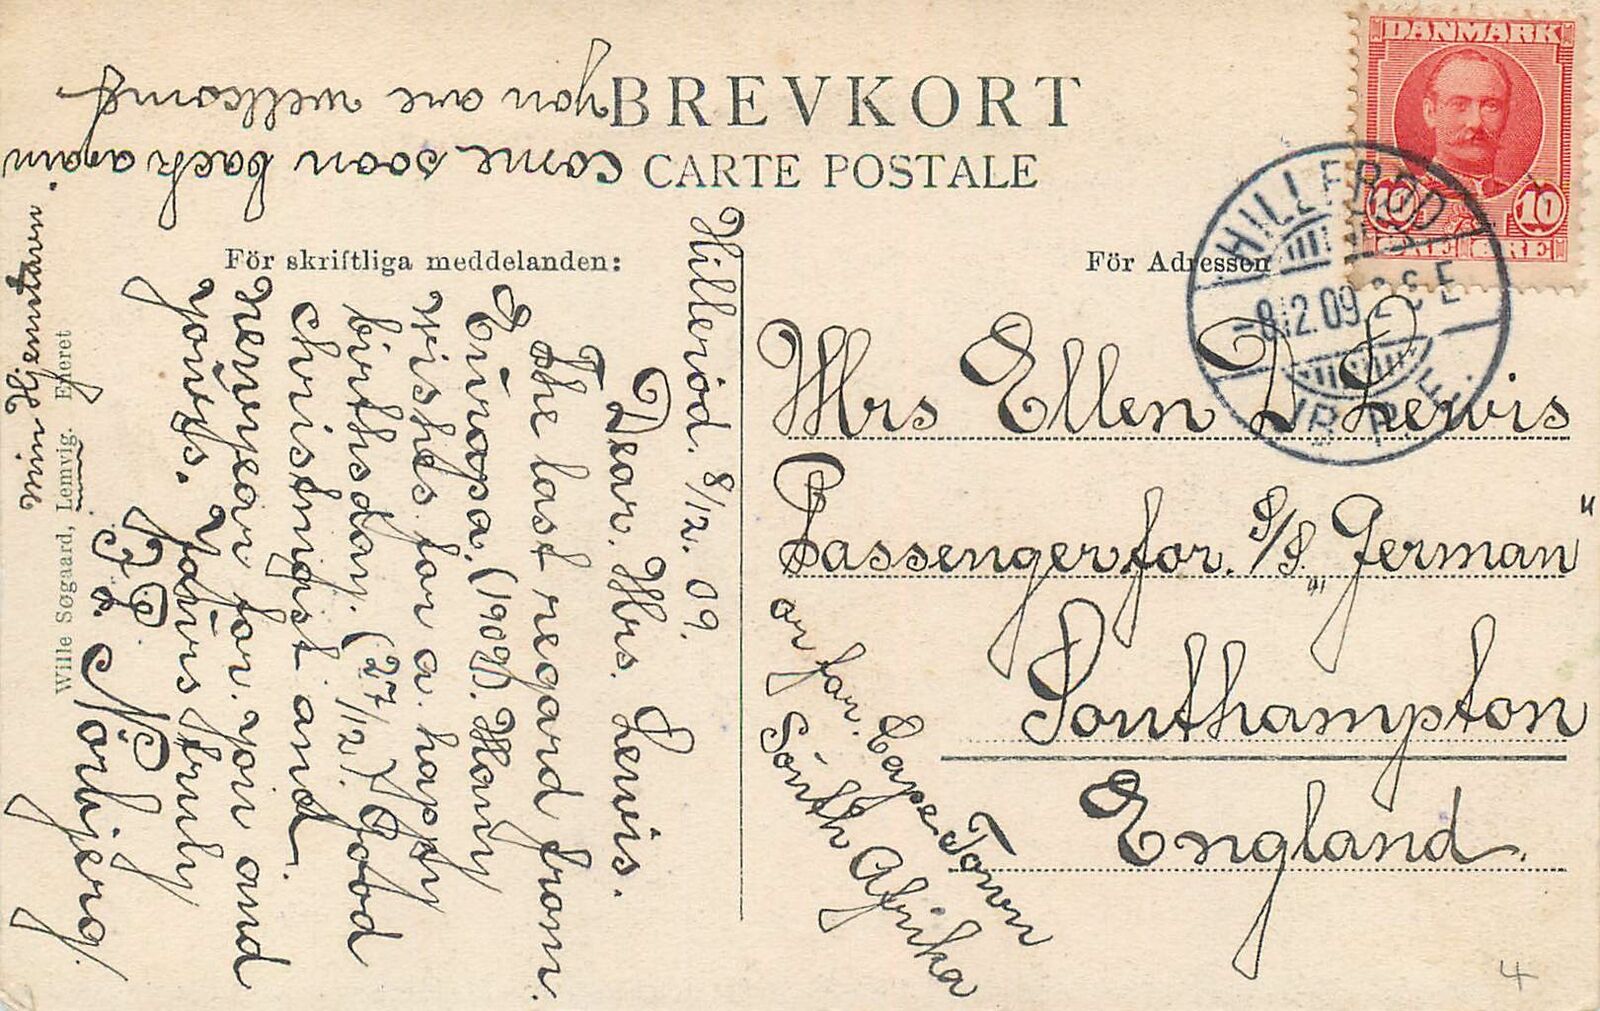 BREVKORT
CARTE POSTALE
För skriftliga meddelanden:
För Adressen
DANMARK
10 10
ØRE ØRE
HILLERØD
-8.12.09 2 S E
JB.P.E.
Mrs Ellen D Lewis
Passenger for. S/S. „German"
Southampton
England.
or for. Cape Town
South Afrika
Hilleröd. 8/12. 09.
Dear. Mrs. Lewis.
The last regard from.
Europa. (1909). Many
wishes for a. happy
birthsday. (27/12.) Good
christmast and.
newyear for. you and
yours.
Yours truly
J. P. Nörbjerg.
come soon back again.
you are wellcomed
min Hjemstavn
Wille Søgaard, Lemvig. Eneret
4